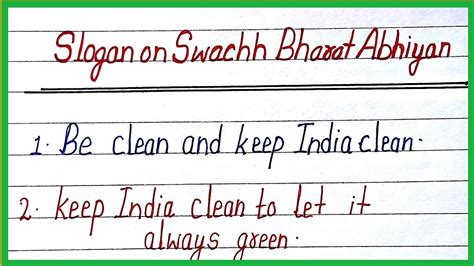 Slogan on Swachh Bharat Abhiyan
1. Be clean and keep India clean.
2. keep India clean to let it
always green.